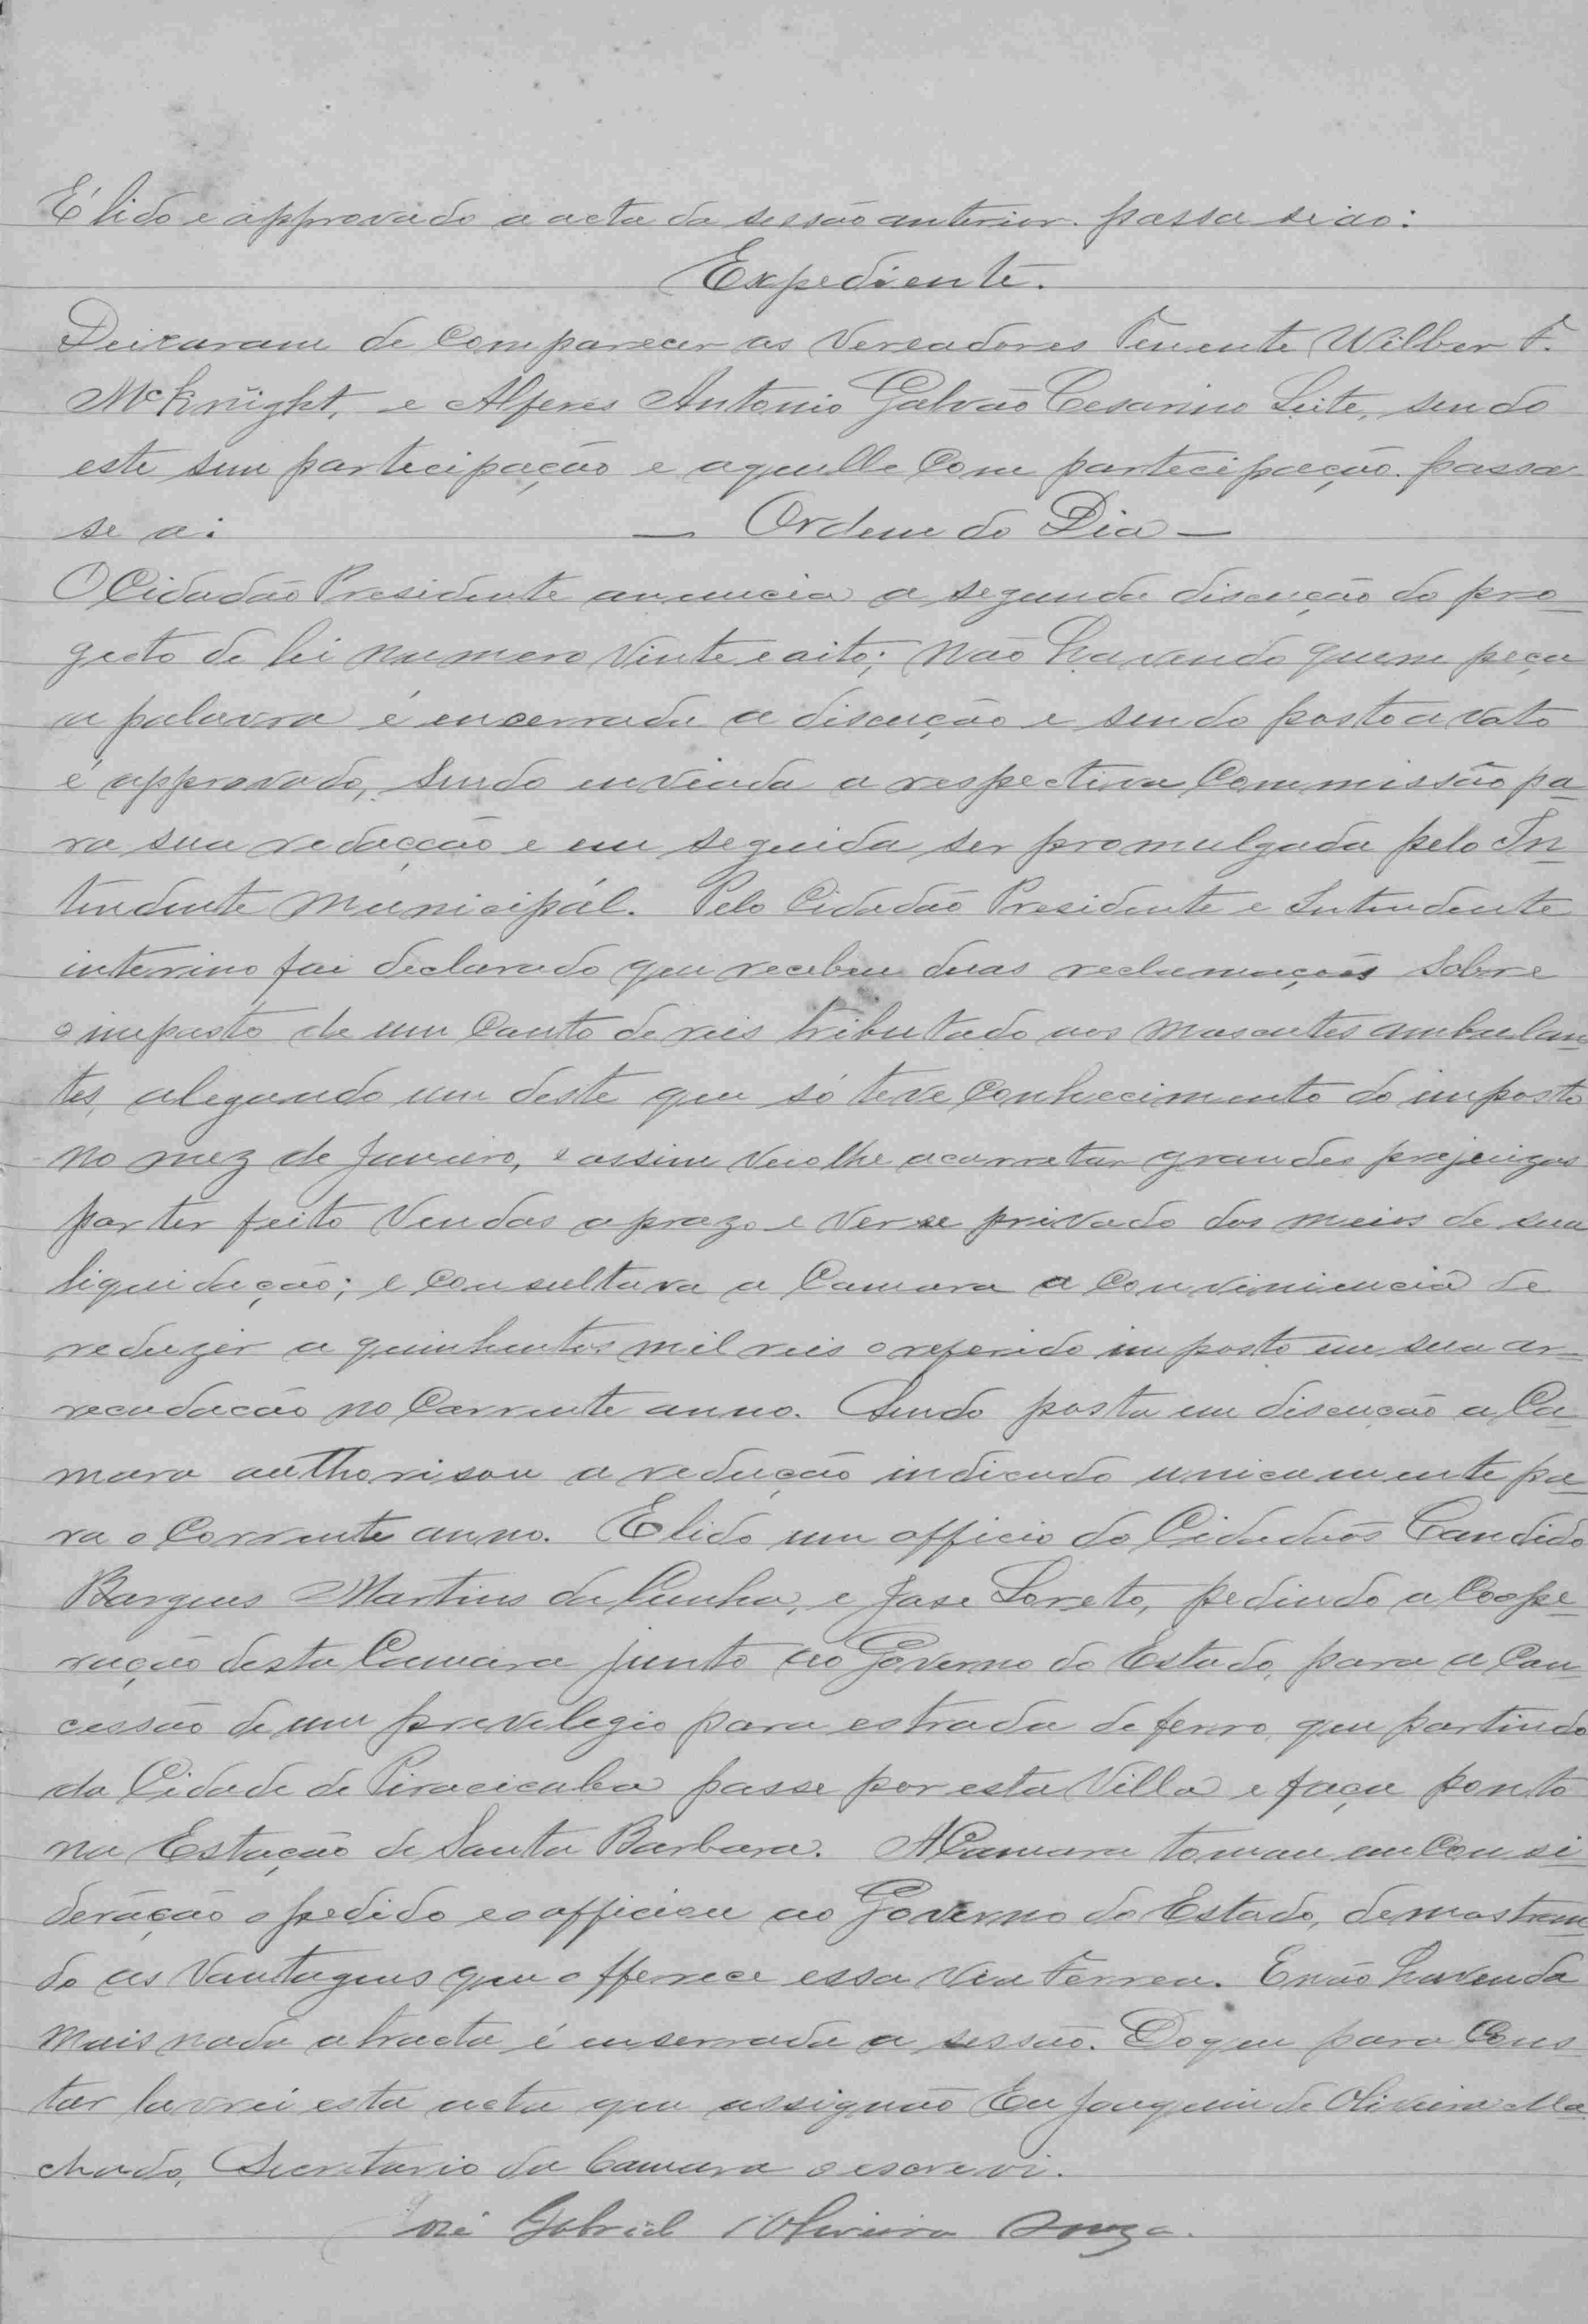 É lido e approvado a acta da sessão anterior. passa se ao:
Expediente.
Deixaram de Comparecer os Vereadores Tenente Wilber F.
McKnight, e Alferes Antonio Galvão Cesarino Leite, sendo
este sem participação e aquelle Com participação. passa
se a: — Ordem do Dia —
O Cidadão Presidente anuncia a segunda discução do pro
gecto de lei numero Vinte e oito; não havendo quem peça
a palavra é encerrada a discução e sendo posto a voto
é approvado, sendo enviada a respectiva Commissão pa
ra sua redacção e em seguida ser promulgada pelo In
tendente municipal. Pelo Cidadão Presidente e Intendente
interino foi declarado que recebeu duas reclamações sobre
o imposto de um Conto de reis tributado aos mascates ambulan
tes, alegando um deste que só teve Conhecimento do imposto
no mez de Janeiro, e assim veio lhe acarretar grandes prejuizos
por ter feito Vendas a prazo e ver se privado dos meios de sua
liquidação; e Consultava a Camara a Conviniencia de
reduzir a quinhentos mil reis o referido imposto em sua ar
recadacão no Corrente anno. Sendo posta em discução a Ca
mara authorisou a redução indicada unicamente pa
ra o Corrente anno. E lido um officio do Cidadãos Candido
Borgues Martins da Cunha, e Jose Loreto, pedindo a Coope
ração desta Camara junto ao Governo do Estado, para a Con
cessão de um previlegio para estrada de ferro, que partindo
da Cidade de Piracicaba passe por esta Villa e faça ponto
na Estação de Santa Barbara. A Camara tomou em Consi
deração o pedido e officiou ao Governo do Estado, demostran
do as Vantagens que offerece essa Via Ferrea. E não havenda
mais nada a tracta é enserrada a sessão. Do que para Cons
tar lavrei esta acta que assignão Eu Joaquim de Oliveira Ma
chado, Secretario da Camara o escrevi.
José Gabriel d'Oliveira Souza.